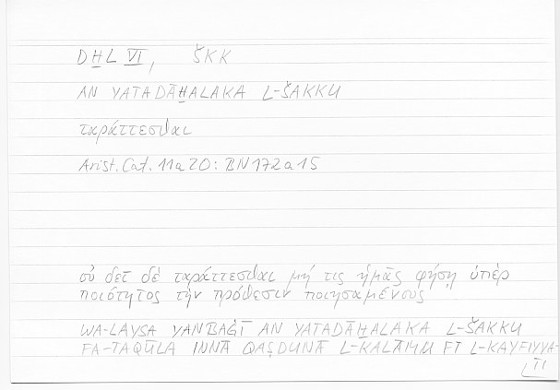 DḪL VI, ŠKK
AN YATADĀḪALAKA L-ŠAKKU
ταράττεσθαι
Arist. Cat. 11a20: BN172a15
οὐ δεῖ δὲ ταράττεσθαι μή τις ἡμᾶς φήσῃ ὑπὲρ
ποιότητος τὴν πρόθεσιν ποιησαμένους
WA-LAYSA YANBAĠĪ AN YATADĀḪALAKA L-ŠAKKU
FA-TAQŪLA INNA QAṢDUNĀ L-KALĀMU FĪ L-KAYFIYYA-
TI